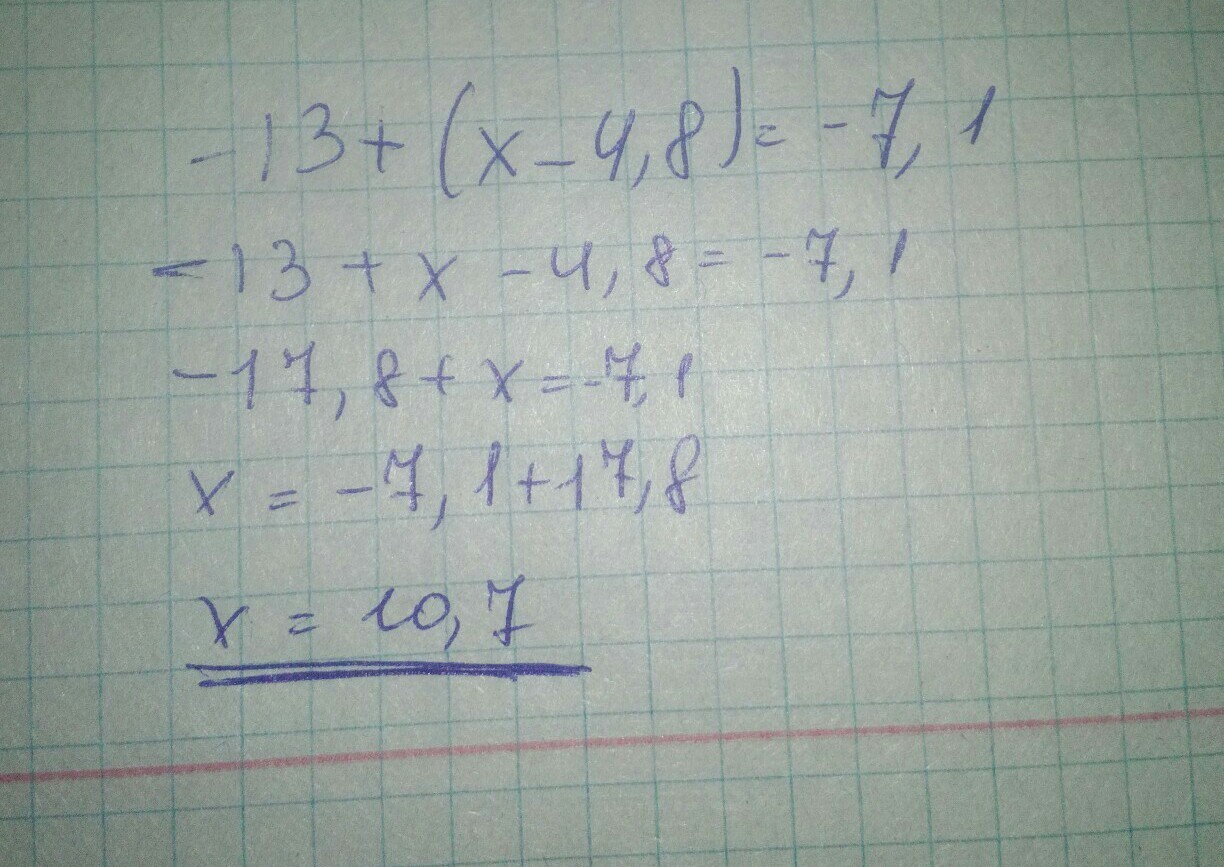 -13+(x-4,8)=-7,1
-13+x-4,8=-7,1
-17,8+x=-7,1
x=-7,1+17,8
x=10,7